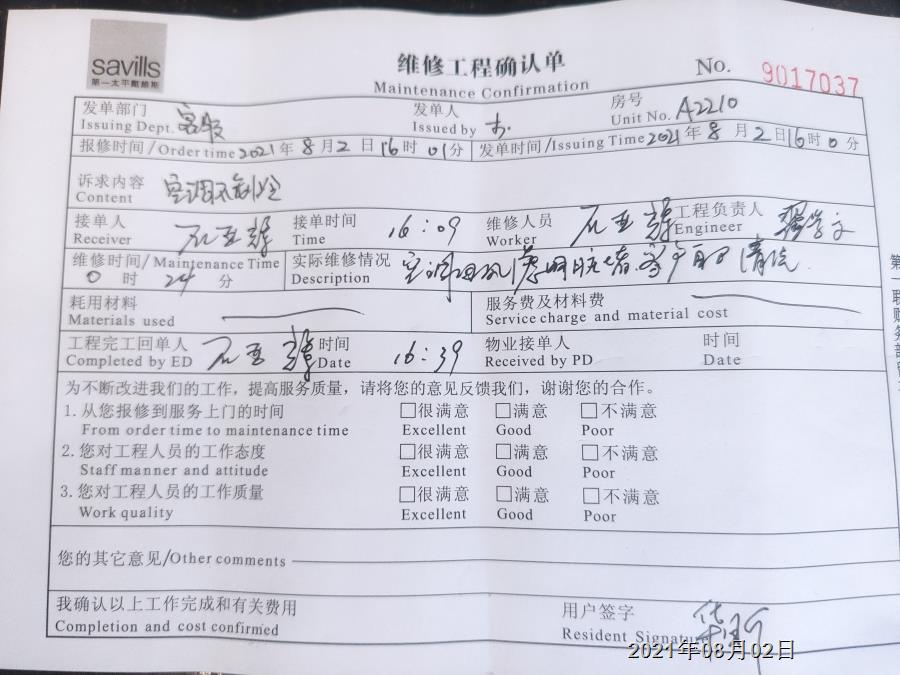 savills
第一太平戴维斯
维修工程确认单
Maintenance Confirmation
No. 9017037
发单部门 客服 发单人 房号
Issuing Dept. Issued by Unit No. A2210
报修时间/Order time 2021年8月2日16时01分 发单时间/Issuing Time 2021年8月2日16时0分
诉求内容 空调不制冷
Content
接单人 石亚辉 接单时间 16:09 维修人员 石亚辉 工程负责人
Receiver Time Worker Engineer
维修时间/Maintenance Time 实际维修情况 空调回风 客户自己清洗
0时24分 Description
耗用材料 服务费及材料费
Materials used Service charge and material cost
工程完工回单人 石亚辉 时间 16:39 物业接单人 时间
Completed by ED Date Received by PD Date
为不断改进我们的工作，提高服务质量，请将您的意见反馈我们，谢谢您的合作。
1.从您报修到服务上门的时间 □很满意 □满意 □不满意
From order time to maintenance time Excellent Good Poor
2.您对工程人员的工作态度 □很满意 □满意 □不满意
Staff manner and attitude Excellent Good Poor
3.您对工程人员的工作质量 □很满意 □满意 □不满意
Work quality Excellent Good Poor
您的其它意见/Other comments
我确认以上工作完成和有关费用 用户签字
Completion and cost confirmed Resident Signature
2021年08月02日
第一联财务部